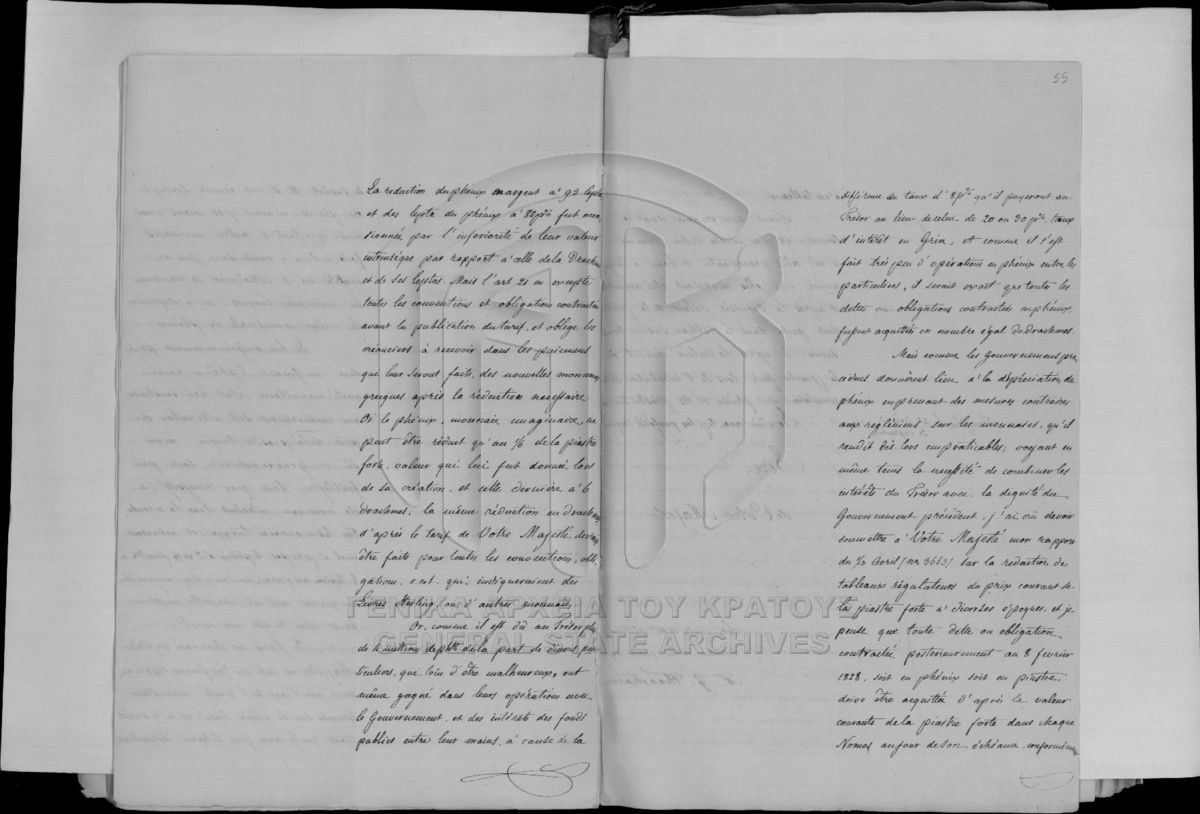 55
La reduction du phénix en argent à 93 lepta
et des lepta du phénix à 80 p% fut occa
sionnée par l'inferiorité de leur valeur
intrinsèque par rapport à celle de la Drachme
et de ses leptas. Mais l'art 21 en excepte
toutes les conventions et obligations contractées
avant la publication du tarif, et oblige les
créanciers à recevoir dans les paiemens
que leur seront faits, des nouvelles monnaies
grecques après la réduction necessaire.
Or le phénix, monnaie imaginaire, ne
peut être réduit qu'au 1/6 de la piastre
forte, valeur qui lui fut donnée, lors
de sa création, et cette dernière à 6
drachmes, la même réduction en drachmes
d'après le tarif de Votre Majesté, devrait
être faite pour toutes les conventions, obli
gations, e.c.t. qui indiqueraient des
Livres Sterling ou d'autres monnaies
Or, comme il est dû au Trésor plus
de millions de phen. de la part de divers par
ticuliers, que loin d'être malheureux, ont
même gagné dans leurs opérations avec
le Gouvernement, et des intérêts des fonds
publics entre leur mains, à cause de la
différence du taux d' 8 p% qu'il payeront au
Trésor au lieu de celui de 20 ou 30 p%, taux
d'intérêt en Grèce, et comme il s'est
fait très peu d'opérations en phénix entre les
particuliers, il serait exact que toute les
dettes ou obligations contractées en phénix,
fussent acquittés en nombre égal de drachmes.
Mais comme les Gouvernemens pré
cédens donnèrent lieu à la dépréciation du
phénix en prenant des mesures contraires
aux règlement sur les monnaies, qu'il
rendit dès lors impraticables; voyant en
même tems la necessité de combiner les
intérêts du Trésor avec la dignité du
Gouvernement précédent, j'ai crû devoir
soumettre à Votre Majesté mon rapport
du Avril (nr 3663) sur la redaction de
tableaux régulateurs du prix courant de
la piastre forte à diverses époques, et je
pense que toute dette ou obligation
contractée posterieurement au 8 fevrier
1828, soit en phénix soit en piastres,
doive être acquittée d'après la valeur
courante de la piastre forte dans chaque
Nomos au jour de son échéance, conformément
ΓΕΝΙΚΑ ΑΡΧΕΙΑ ΤΟΥ ΚΡΑΤΟΥΣ
GENERAL STATE ARCHIVES